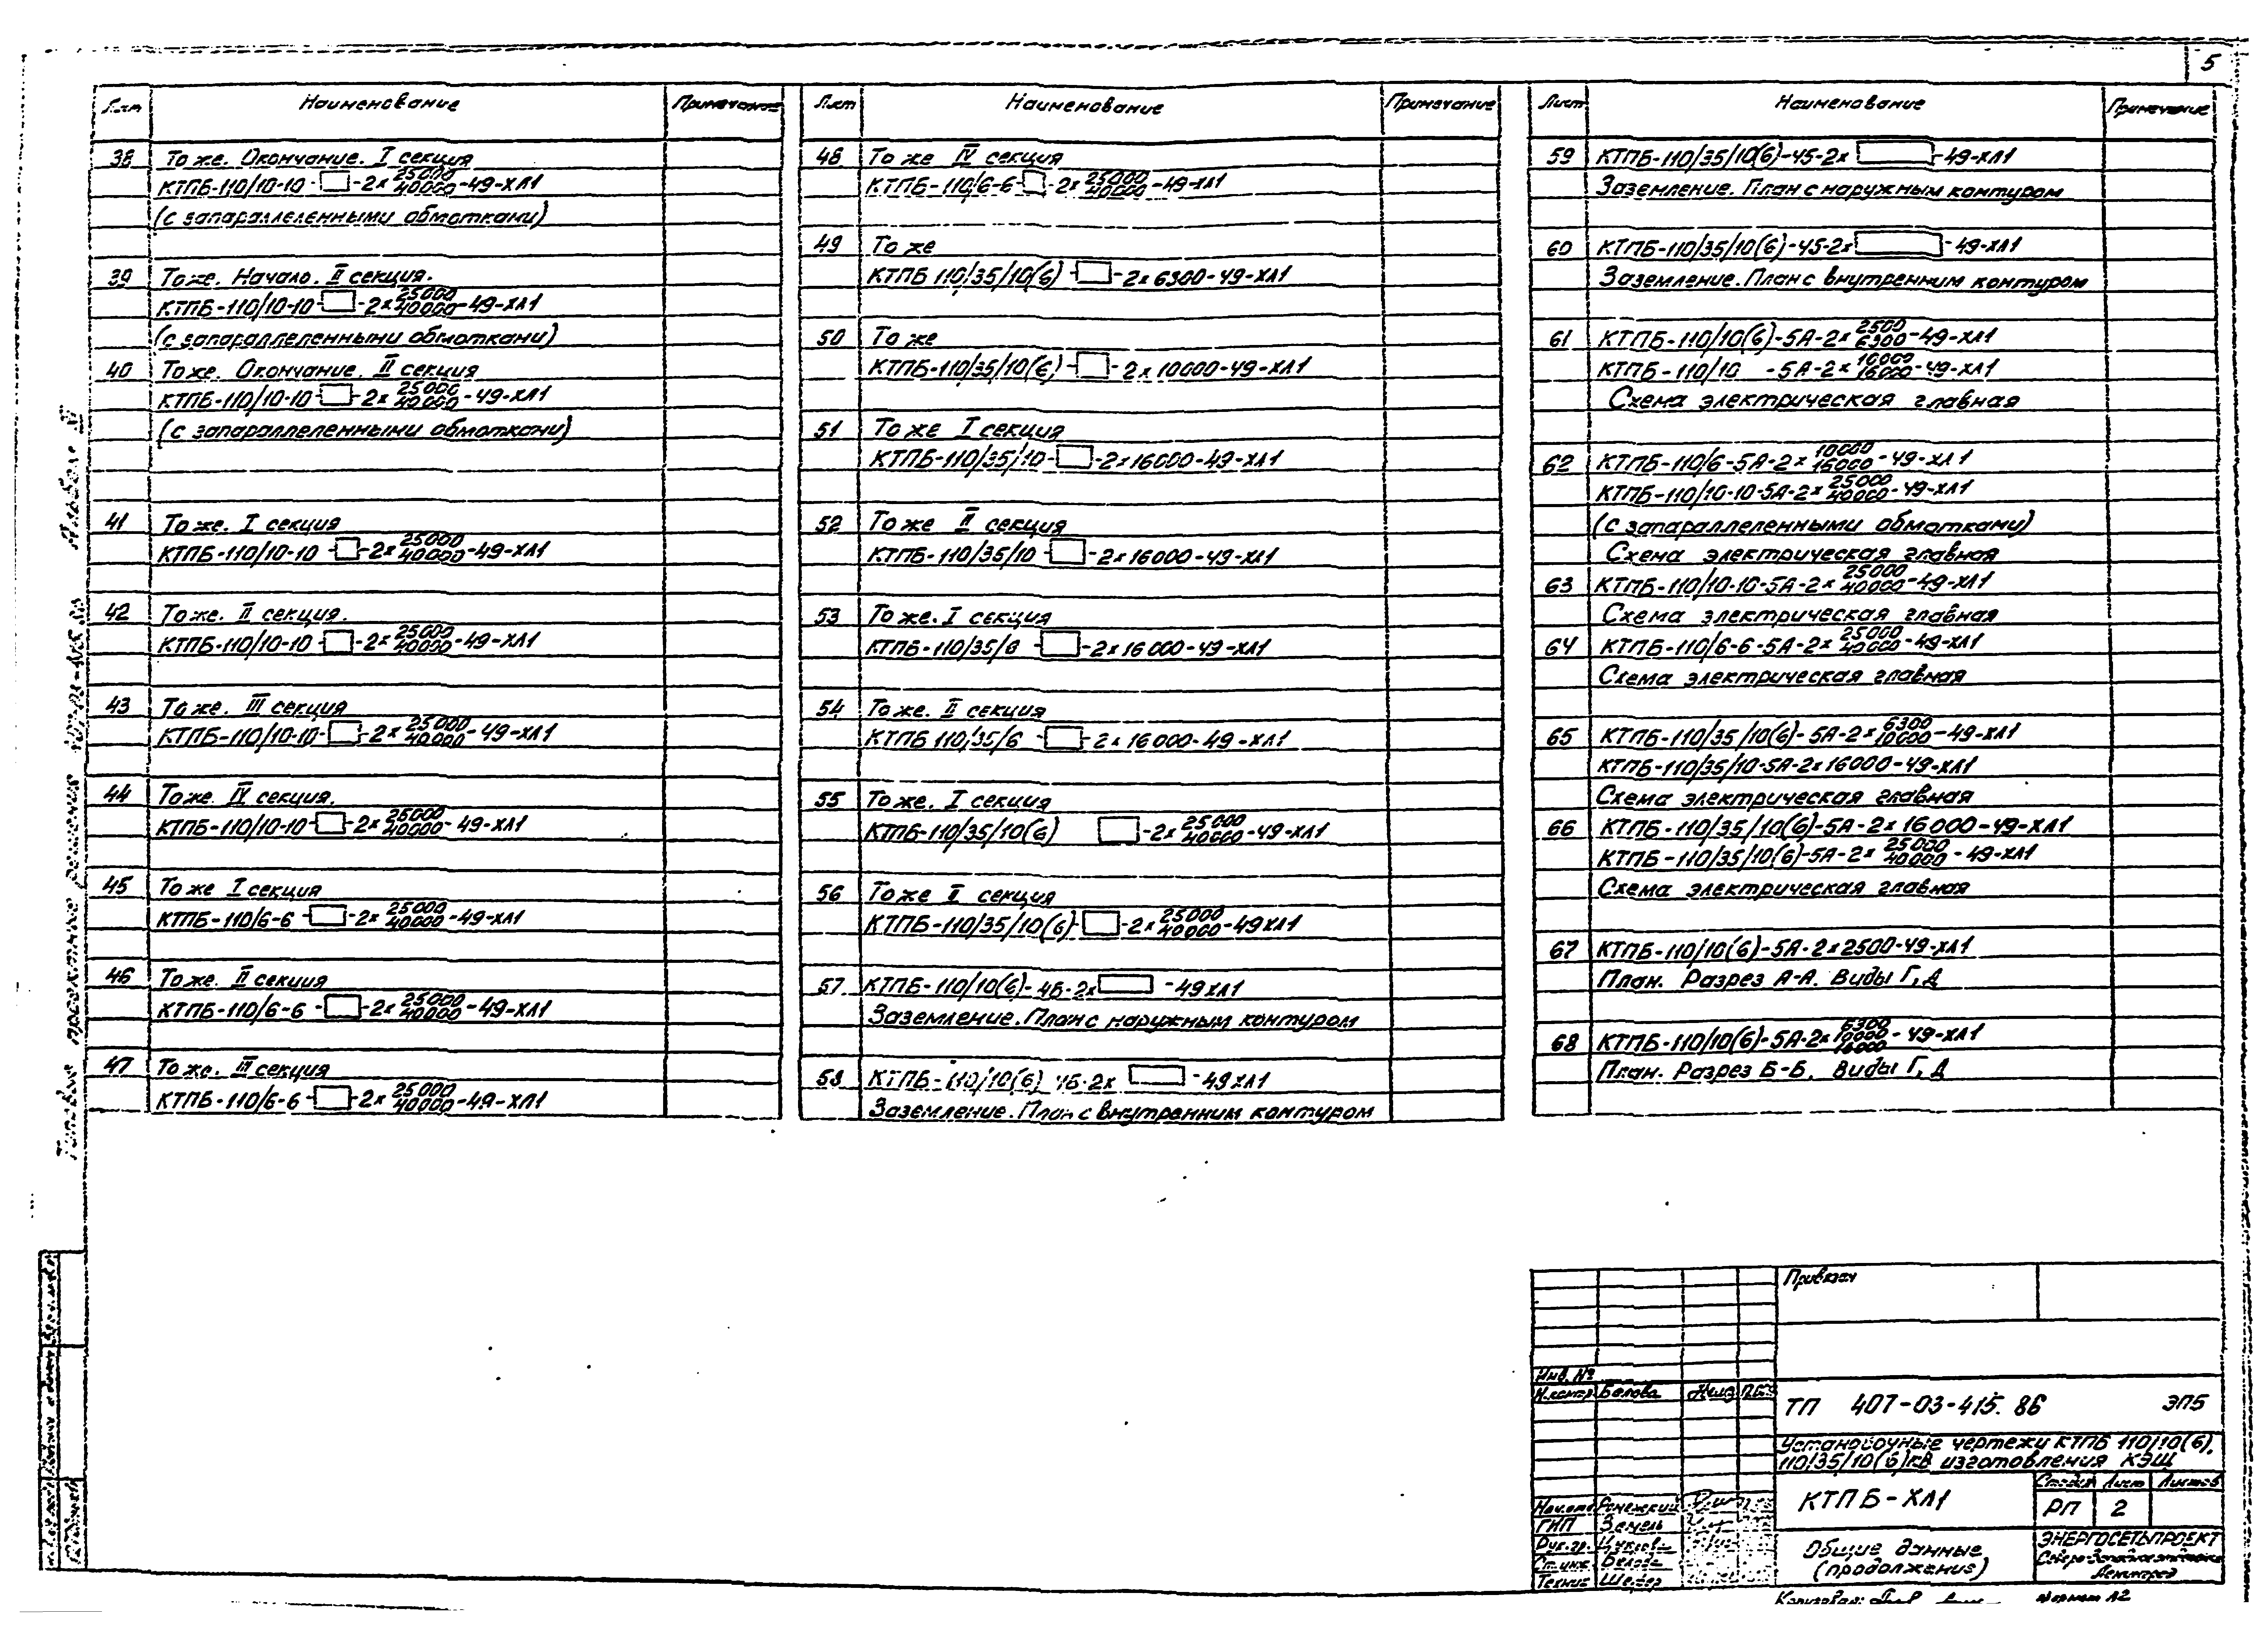 5
Лист Наименование Примечание
38 То же. Окончание. I секция
КТПБ-110/10-10-□-2×25000/40000-49-ХЛ1
(с запараллеленными обмотками)
39 То же. Начало. II секция.
КТПБ-110/10-10-□-2×25000/40000-49-ХЛ1
(с запараллеленными обмотками)
40 То же. Окончание. II секция
КТПБ-110/10-10-□-2×25000/40000-49-ХЛ1
(с запараллеленными обмотками)
41 То же. I секция
КТПБ-110/10-10-□-2×25000/40000-49-ХЛ1
42 То же. II секция.
КТПБ-110/10-10-□-2×25000/40000-49-ХЛ1
43 То же. III секция
КТПБ-110/10-10-□-2×25000/40000-49-ХЛ1
44 То же. IV секция.
КТПБ-110/10-10-□-2×25000/40000-49-ХЛ1
45 То же I секция
КТПБ-110/6-6-□-2×25000/40000-49-ХЛ1
46 То же. II секция
КТПБ-110/6-6-□-2×25000/40000-49-ХЛ1
47 То же. III секция
КТПБ-110/6-6-□-2×25000/40000-49-ХЛ1
Лист Наименование Примечание
48 То же IV секция
КТПБ-110/6-6-□-2×25000/40000-49-ХЛ1
49 То же
КТПБ 110/35/10(6)-□-2×6300-49-ХЛ1
50 То же
КТПБ-110/35/10(6)-□-2×10000-49-ХЛ1
51 То же I секция
КТПБ-110/35/10-□-2×16000-49-ХЛ1
52 То же II секция
КТПБ-110/35/10-□-2×16000-49-ХЛ1
53 То же. I секция
КТПБ-110/35/6-□-2×16000-49-ХЛ1
54 То же. II секция
КТПБ 110/35/6-□-2×16000-49-ХЛ1
55 То же. I секция
КТПБ-110/35/10(6) □-2×25000/40000-49-ХЛ1
56 То же II секция
КТПБ-110/35/10(6)-□-2×25000/40000-49ХЛ1
57 КТПБ-110/10(6)-4Б-2×□-49ХЛ1
Заземление. План с наружным контуром
58 КТПБ-110/10(6) 4Б-2×□-49ХЛ1
Заземление. План с внутренним контуром
Лист Наименование Примечание
59 КТПБ-110/35/10(6)-45-2×□-49-ХЛ1
Заземление. План с наружным контуром
60 КТПБ-110/35/10(6)-45-2×□-49-ХЛ1
Заземление. План с внутренним контуром
61 КТПБ-110/10(6)-5А-2×2500/6300-49-ХЛ1
КТПБ-110/10 -5А-2×10000/16000-49-ХЛ1
Схема электрическая главная
62 КТПБ-110/6-5А-2×10000/16000-49-ХЛ1
КТПБ-110/10-10-5А-2×25000/40000-49-ХЛ1
(с запараллеленными обмотками)
Схема электрическая главная
63 КТПБ-110/10-10-5А-2×25000/40000-49-ХЛ1
Схема электрическая главная
64 КТПБ-110/6-6-5А-2×25000/40000-49-ХЛ1
Схема электрическая главная
65 КТПБ-110/35/10(6)-5А-2×6300/10000-49-ХЛ1
КТПБ-110/35/10-5А-2×16000-49-ХЛ1
Схема электрическая главная
66 КТПБ-110/35/10(6)-5А-2×16000-49-ХЛ1
КТПБ-110/35/10(6)-5А-2×25000/40000-49-ХЛ1
Схема электрическая главная
67 КТПБ-110/10(6)-5А-2×2500-49-ХЛ1
План. Разрез А-А. Виды Г, Д
68 КТПБ-110/10(6)-5А-2×6300/10000/16000-49-ХЛ1
План. Разрез Б-Б. Виды Г, Д
Типовые проектные решения Альбом
Привязан
Инв. №
Н.контр. Белова
ТП 407-03-415.86 ЭП5
Установочные чертежи КТПБ 110/10(6),
110/35/10(6)кВ изготовления КЭЩ
КТПБ-ХЛ1
Стадия Лист Листов
РП 2
Нач.отд Роменский
ГИП Земель
Рук.гр.
Ст.инж. Белова
Техник Шефер
Общие данные
(продолжение)
ЭНЕРГОСЕТЬПРОЕКТ
Северо-Западное отделение
Ленинград
Копировал:
Формат А2